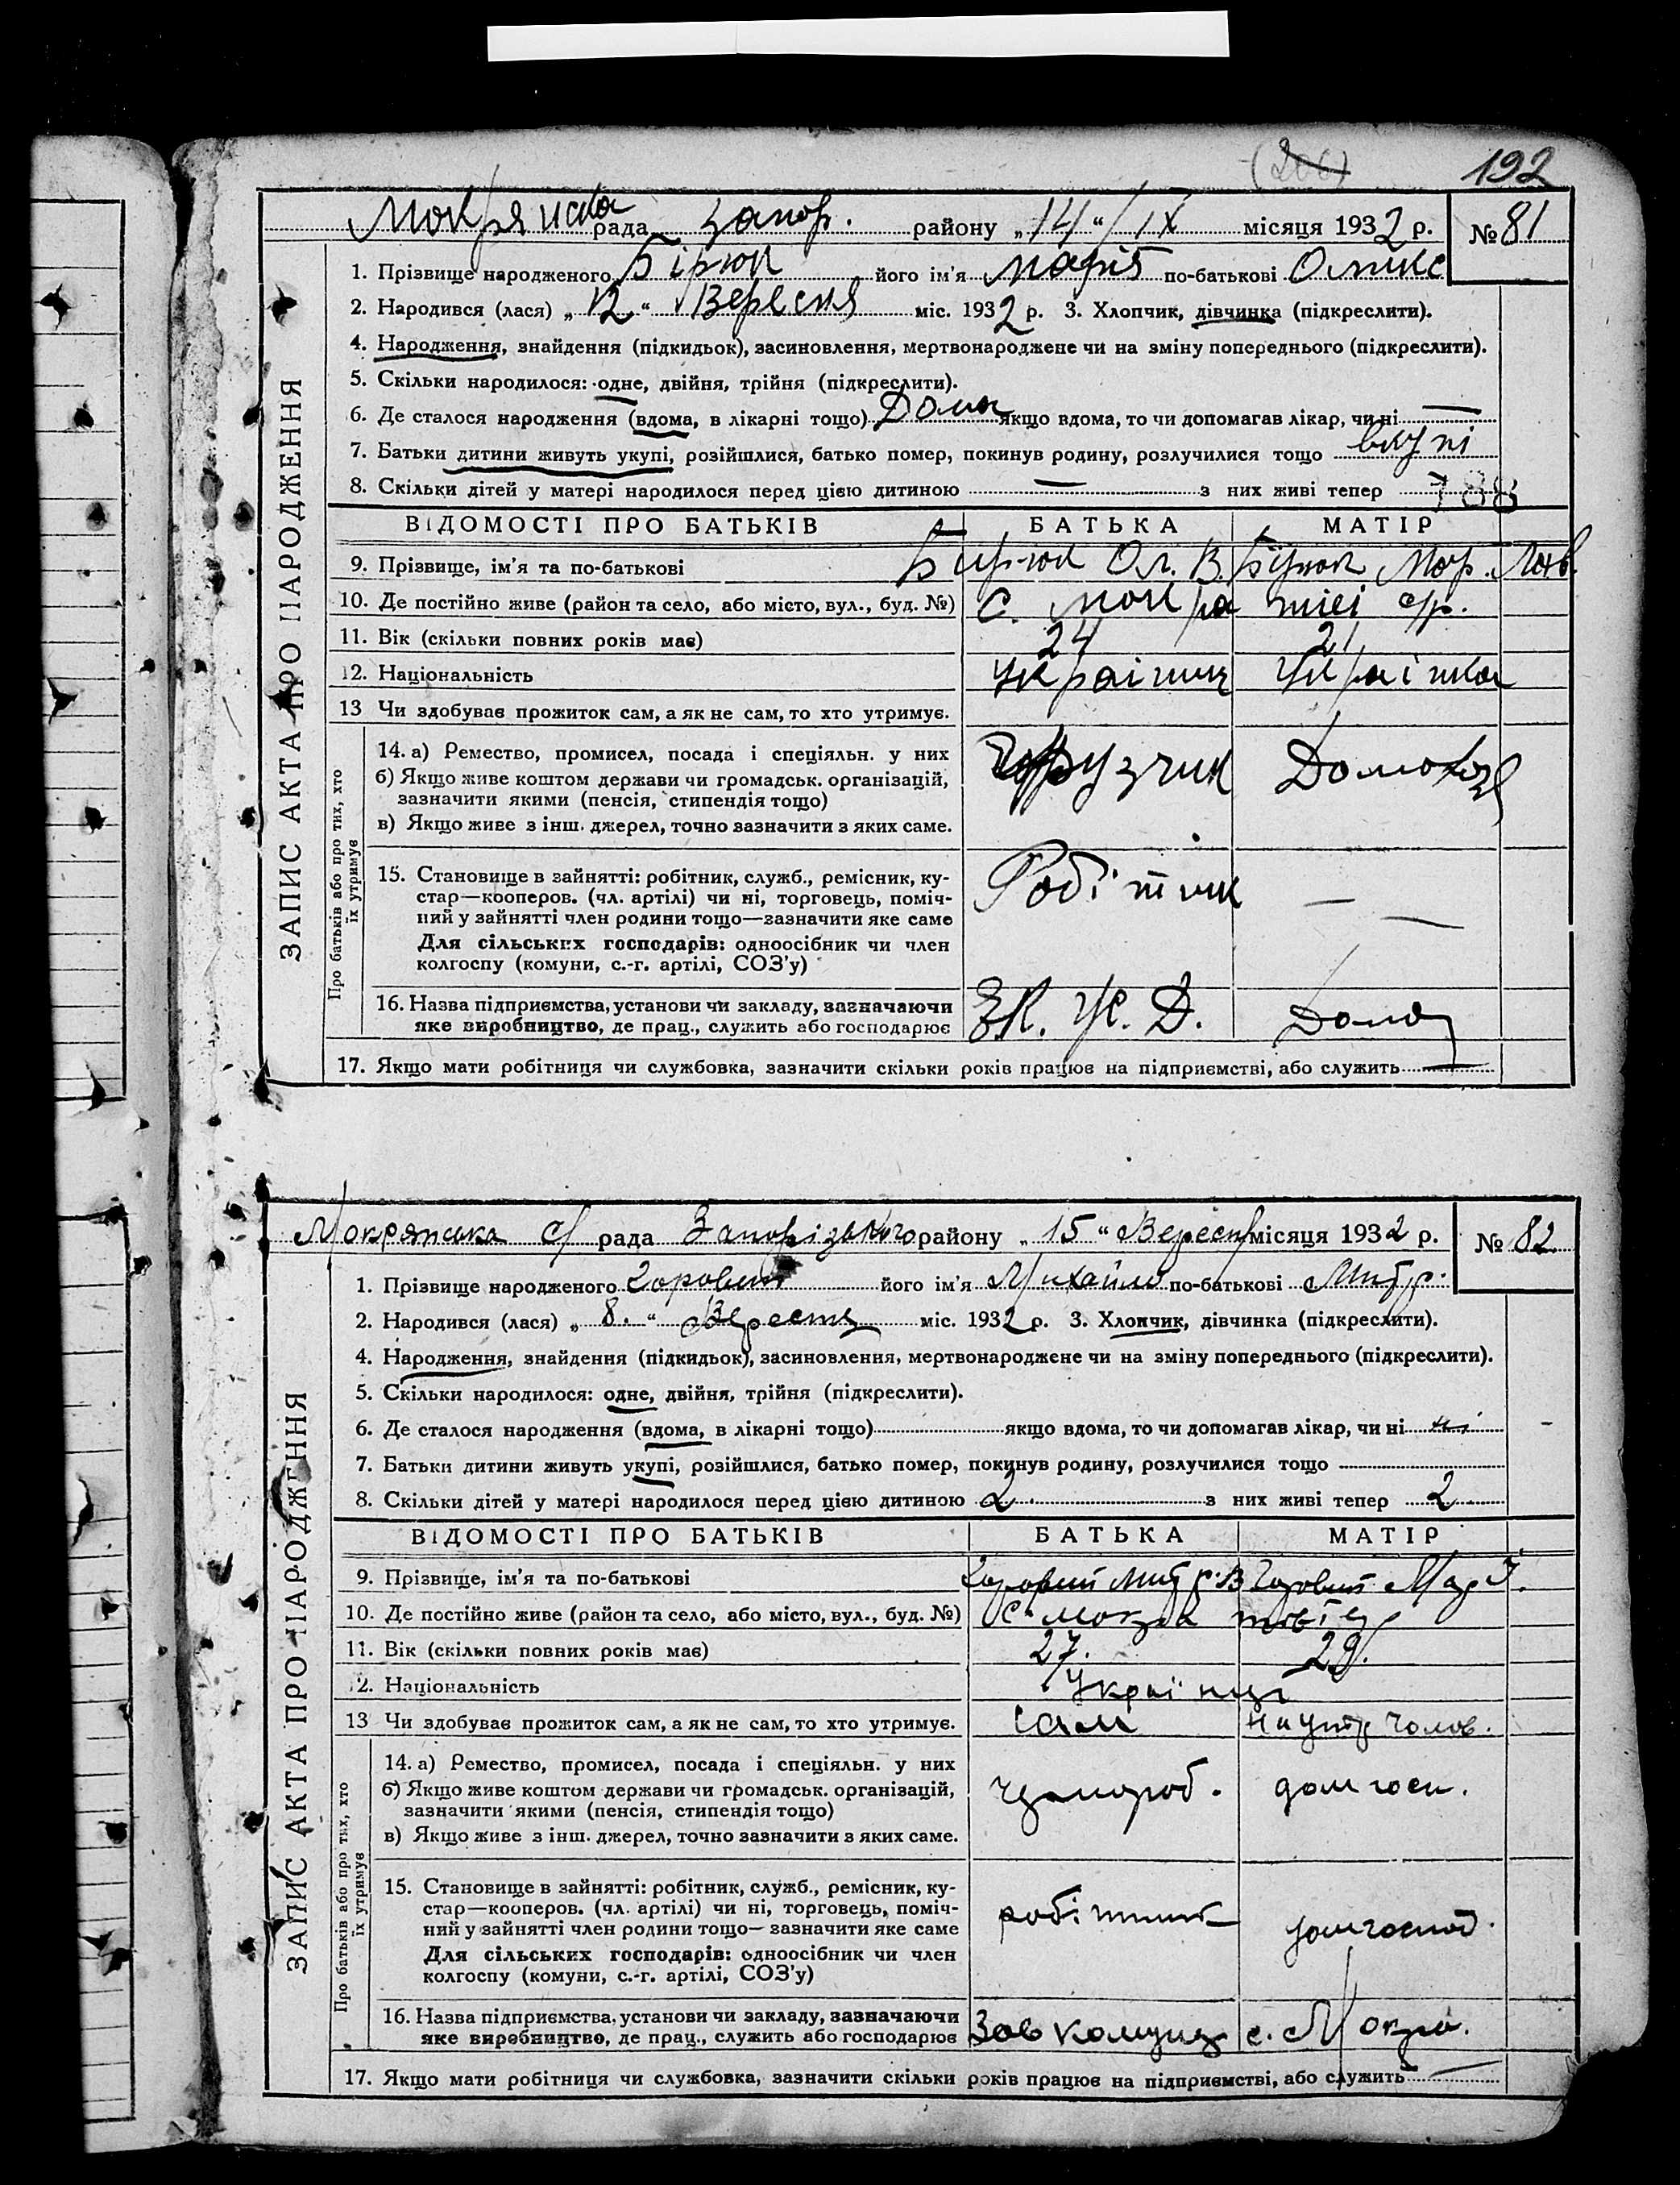 192
Мокрянска рада Запор. району „14“ ІХ місяця 1932 р. № 81
ЗАПИС АКТА ПРО НАРОДЖЕННЯ
1. Прізвище народженого Бірюк його ім'я Марія по-батькові Олекс
2. Народився (лася) „12“ Вересня міс. 1932 р. 3. Хлопчик, дівчинка (підкреслити).
4. Народження, знайдення (підкидьок), засиновлення, мертвонароджене чи на зміну попереднього (підкреслити).
5. Скільки народилося: одне, двійня, трійня (підкреслити).
6. Де сталося народження (вдома, в лікарні тощо) Дома якщо вдома, то чи допомагав лікар, чи ні —
7. Батьки дитини живуть укупі, розійшлися, батько помер, покинув родину, розлучилися тощо вкупі
8. Скільки дітей у матері народилося перед цією дитиною — з них живі тепер
788
ВІДОМОСТІ ПРО БАТЬКІВ БАТЬКА МАТІР
9. Прізвище, ім'я та по-батькові Бирюк Ол. В. Бірюк Мар.
10. Де постійно живе (район та село, або місто, вул., буд. №) С. Мокра
11. Вік (скільки повних років має) 24 21
12. Національність Українец Українка
13 Чи здобуває прожиток сам, а як не сам, то хто утримує.
Про батьків або про тих, хто їх утримує
14. а) Ремество, промисел, посада і спеціяльн. у них Грузчик Домохоз
б) Якщо живе коштом держави чи громадськ. організацій,
зазначити якими (пенсія, стипендія тощо)
в) Якщо живе з інш. джерел, точно зазначити з яких саме.
15. Становище в зайнятті: робітник, служб., ремісник, ку-
стар—кооперов. (чл. артілі) чи ні, торговець, поміч- Робітник —
ний у зайнятті член родини тощо—зазначити яке саме
Для сільських господарів: одноосібник чи член
колгоспу (комуни, с.-г. артілі, СОЗ'у)
16. Назва підприємства, установи чи закладу, зазначаючи
яке виробництво, де прац., служить або господарює Ж. Д. Дома
17. Якщо мати робітниця чи службовка, зазначити скільки років працює на підприємстві, або служить —
Мокрянська с/ рада Запорізького району „15“ Вересн місяця 1932 р. № 82
ЗАПИС АКТА ПРО НАРОДЖЕННЯ
1. Прізвище народженого Горовий його ім'я Михайло по-батькові Митр.
2. Народився (лася) „8.“ Вересня міс. 1932 р. 3. Хлопчик, дівчинка (підкреслити).
4. Народження, знайдення (підкидьок), засиновлення, мертвонароджене чи на зміну попереднього (підкреслити).
5. Скільки народилося: одне, двійня, трійня (підкреслити).
6. Де сталося народження (вдома, в лікарні тощо) якщо вдома, то чи допомагав лікар, чи ні ні
7. Батьки дитини живуть укупі, розійшлися, батько помер, покинув родину, розлучилися тощо
8. Скільки дітей у матері народилося перед цією дитиною 2 з них живі тепер 2
ВІДОМОСТІ ПРО БАТЬКІВ БАТЬКА МАТІР
9. Прізвище, ім'я та по-батькові Горовий Митр. В Горовий Мар. І.
10. Де постійно живе (район та село, або місто, вул., буд. №) с. Мокра
11. Вік (скільки повних років має) 27. 29.
12. Національність Українці
13 Чи здобуває прожиток сам, а як не сам, то хто утримує. сам на утр чолов.
Про батьків або про тих, хто їх утримує
14. а) Ремество, промисел, посада і спеціяльн. у них
б) Якщо живе коштом держави чи громадськ. організацій, чорнороб. дом госп.
зазначити якими (пенсія, стипендія тощо)
в) Якщо живе з інш. джерел, точно зазначити з яких саме.
15. Становище в зайнятті: робітник, служб., ремісник, ку-
стар—кооперов. (чл. артілі) чи ні, торговець, поміч- робітник домгоспод.
ний у зайнятті член родини тощо—зазначити яке саме
Для сільських господарів: одноосібник чи член
колгоспу (комуни, с.-г. артілі, СОЗ'у)
16. Назва підприємства, установи чи закладу, зазначаючи
яке виробництво, де прац., служить або господарює Зав Комунар с. Мокра.
17. Якщо мати робітниця чи службовка, зазначити скільки років працює на підприємстві, або служить —